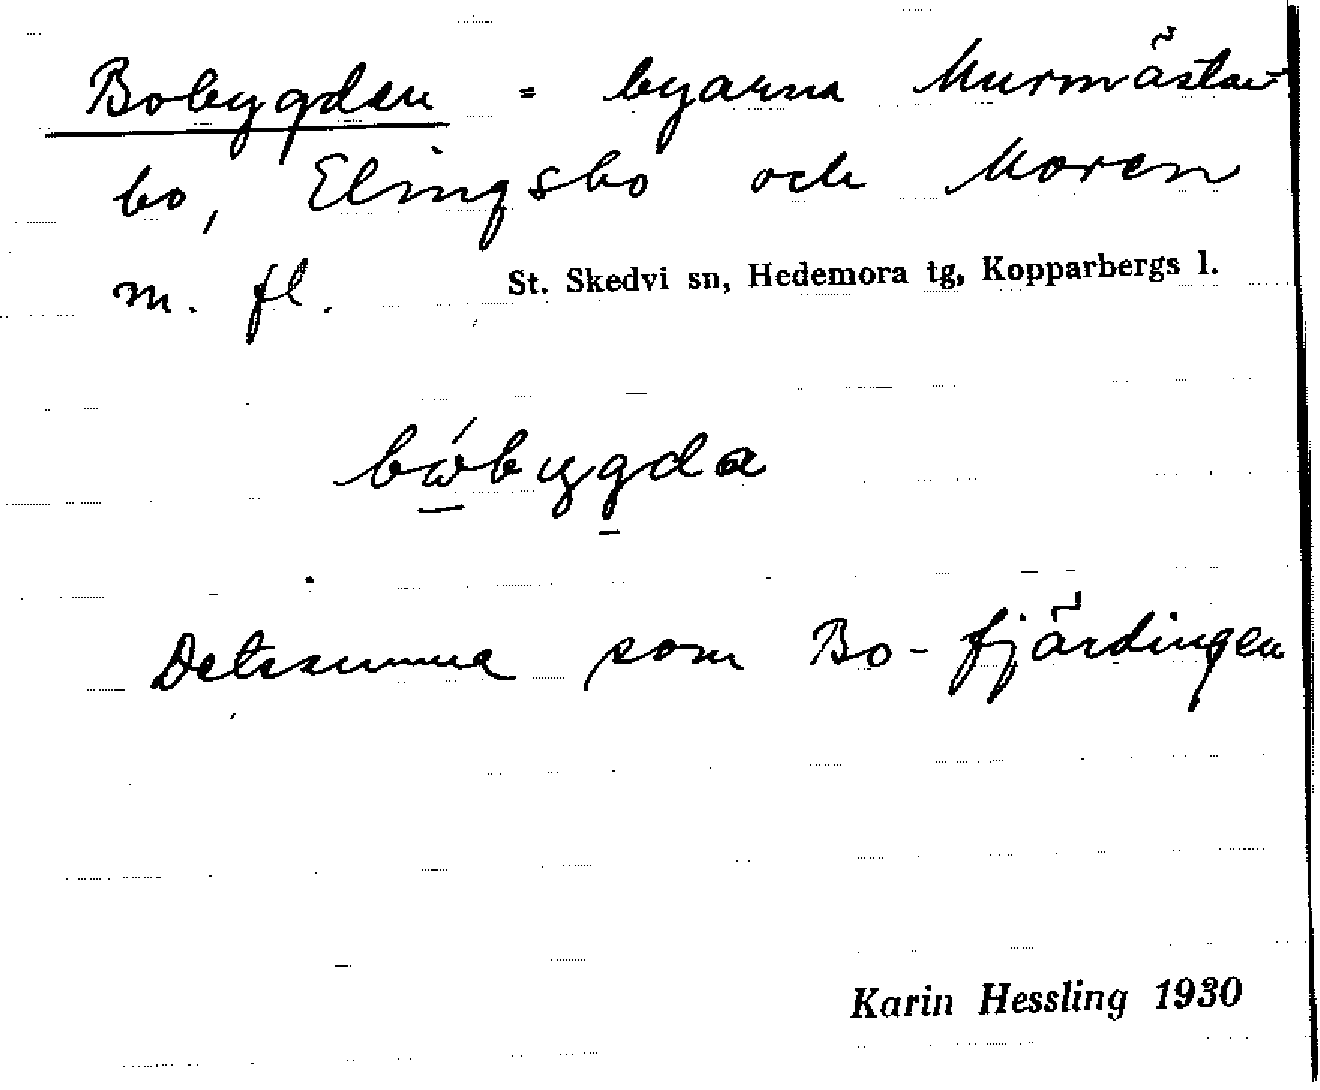 Bobygden = byarna Murmästar-
bo, Elingsbo och Moren
m. fl. St. Skedvi sn, Hedemora tg, Kopparbergs l.
bɷ́bygda
Detsamma som Bo-fjärdingen
Karin Hessling 1930